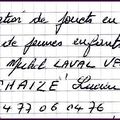 ation de jouets en
de jeunes enfants
Michel LAVAL VE
CHAIZE Lucien
4 77 06 0476